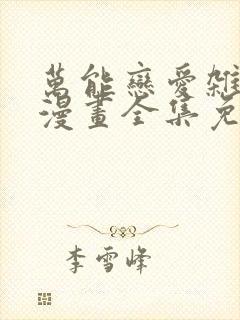 萬能戀愛雜
漫畫全集免
李雪峰